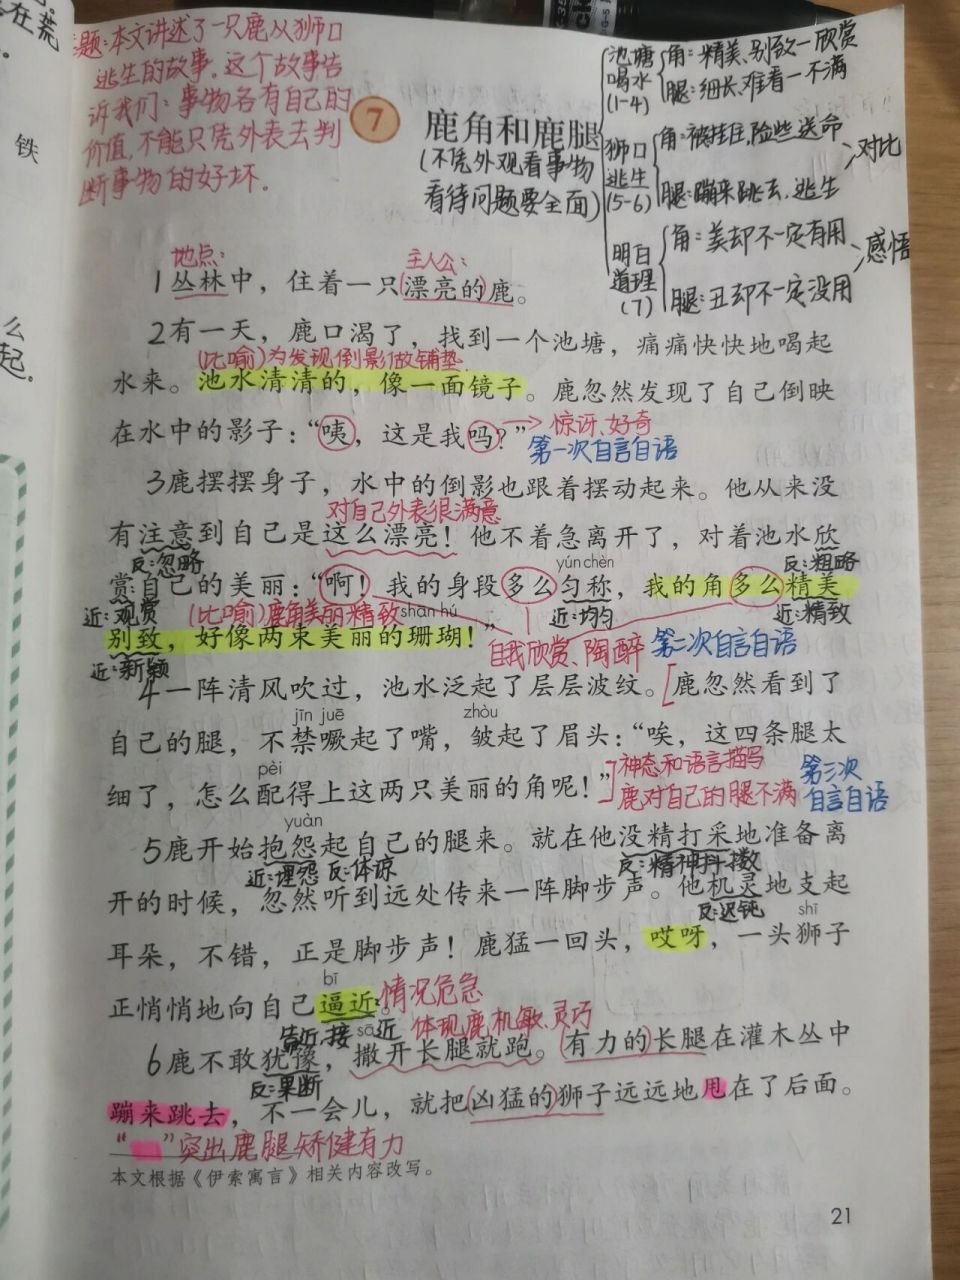 在荒
铁
么
起。
题:本文讲述了一只鹿从狮口
逃生的故事。这个故事告
诉我们:事物各有自己的
价值,不能只凭外表去判
断事物的好坏.
7
鹿角和鹿腿
(不凭外观看事物
看待问题要全面)
池塘
喝水
(1-4)
角:精美、别致—欣赏
腿:细长、难看—不满
狮口
逃生
(5-6)
角:被挂住,险些送命
腿:蹦来跳去,逃生
对比
明白
道理
(7)
角:美却不一定有用
腿:丑却不一定没用
感悟
地点:
主人公:
1丛林中,住着一只(漂亮的)鹿。
2有一天,鹿口渴了,找到一个池塘,痛痛快快地喝起
(比喻)为发现倒影做铺垫.
水来。池水清清的,像一面镜子。鹿忽然发现了自己倒映
在水中的影子:“咦,这是我吗?”
→惊讶、好奇
第一次自言自语
3鹿摆摆身子,水中的倒影也跟着摆动起来。他从来没
对自己外表很满意
有注意到自己是这么漂亮!他不着急离开了,对着池水欣
反:忽略
yún chèn
反:粗略
赏自己的美丽:“啊!我的身段多么匀称,我的角多么精美
近:观赏
(比喻)鹿角美丽精致
shān hú
近:均匀
近:精致
别致,好像两束美丽的珊瑚!”
近:新颖
自我欣赏、陶醉
第二次自言自语
4一阵清风吹过,池水泛起了层层波纹。[鹿忽然看到了
jīn juē
zhòu
自己的腿,不禁噘起了嘴,皱起了眉头:“唉,这四条腿太
pèi
细了,怎么配得上这两只美丽的角呢!”]
神态和语言描写
鹿对自己的腿不满
第三次
自言自语
yuàn
5鹿开始抱怨起自己的腿来。就在他没精打采地准备离
近:埋怨 反:体谅
反:精神抖擞
开的时候,忽然听到远处传来一阵脚步声。他机灵地支起
反:迟钝
shī
耳朵,不错,正是脚步声!鹿猛一回头,哎呀,一头狮子
bī
正悄悄地向自己逼近。
情况危急
靠近、接近
sā
体现鹿机敏、灵巧
6鹿不敢犹豫,撒开长腿就跑。(有力的)长腿在灌木丛中
反:果断
蹦来跳去,不一会儿,就把(凶猛的)狮子远远地甩在了后面。
“ ”突出鹿腿矫健有力
本文根据《伊索寓言》相关内容改写。
21